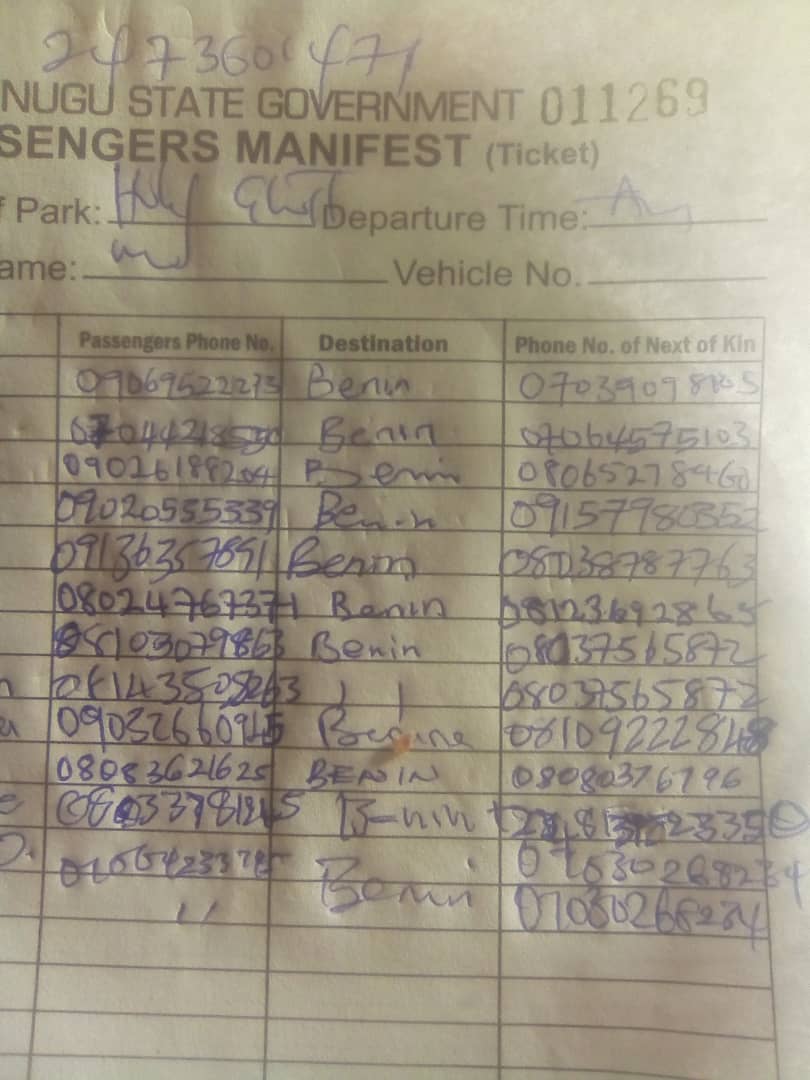 NUGU STATE GOVERNMENT 011269
SENGERS MANIFEST (Ticket)
f Park: Holy Ghost Departure Time:
ame: Vehicle No.
Passengers Phone No. Destination Phone No. of Next of Kin
09069522273 Benin
Benin 07064575103
09026188204 Benin 08065278460
09020555339 Benin 09157980352
09136357891 Benin 08038787763
08024767371 Benin 08123692865
08103079863 Benin 08037565872
08143508263 | | 08037565872
Benin
08083621625 BENIN 08080376796
Benin
Benin 07030268234
" 07030268234